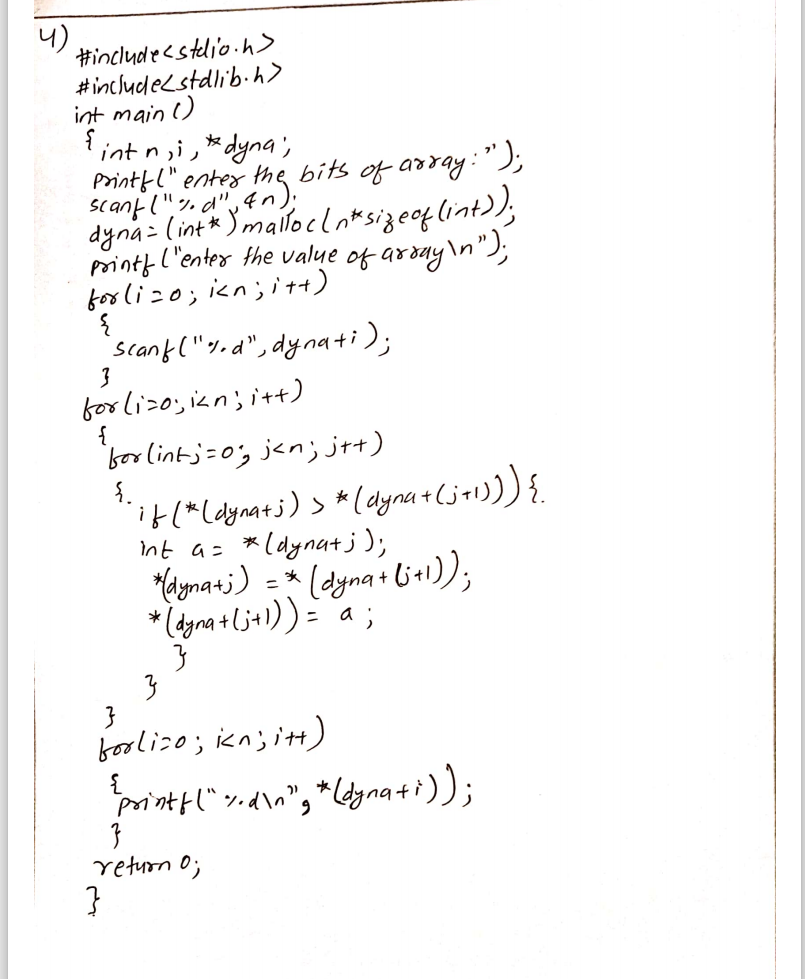 4)
#include<stdio.h>
#include<stdlib.h>
int main()
{ int n,i,*dyna;
printf("enter the bits of array:");
scanf("%d",&n);
dyna=(int*)malloc(n*sizeof(int));
printf("enter the value of array\n");
for(i=0; i<n; i++)
{
scanf("%d", dyna+i);
}
for(i=0; i<n; i++)
{
for(int j=0; j<n; j++)
{
if(*(dyna+j) > *(dyna+(j+1))) {
int a= *(dyna+j);
*(dyna+j) =*(dyna+(j+1));
*(dyna+(j+1))= a;
}
}
}
for(i=0; i<n; i++)
{
printf("%d\n", *(dyna+i));
}
return 0;
}